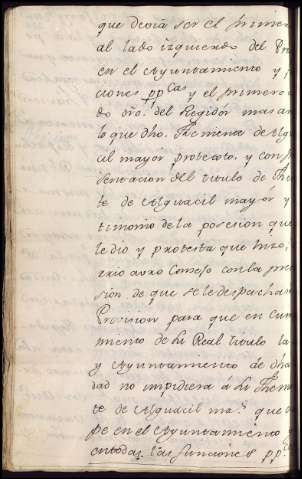 que devia ser el primer
al lado izquierdo del Pr
en el Ayuntamiento y
ciones ppcas y el primero
do dro. del Regidor mas an
lo que dho. Themente de Alg
cil mayor protesto, y con p
sentacion del titulo de The
te de Alguacil mayor y
timonio de la posesion que
le dio y protesta que hizo,
rrio a nro Consejo con la pre
sion de que se le despachas
Provision para que en cum
mento de la Real titulo la
y Ayuntamiento de dha
dad no impidiera a la Theme
te de Alguacil mar. que o
pe en el Ayuntamiento
en todas las funciones pp